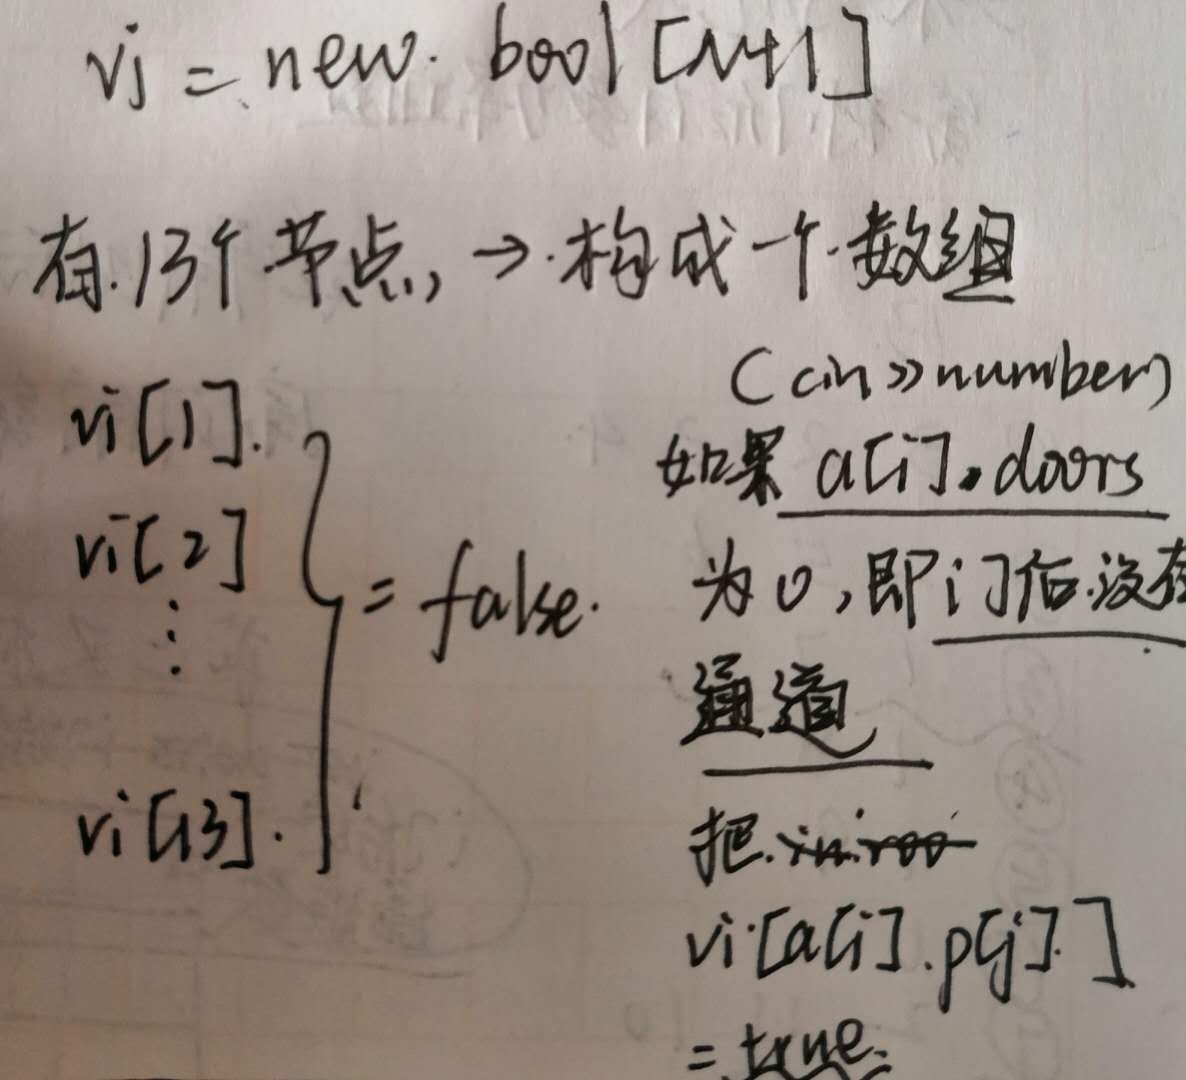 vj = new. bool [N+1]
有.13个节点, → 构成一个数组
vi[1].
vi[2]
⋮
vi[13].
= false.
(cin >> number)
如果 a[i].doors
为0,即门后没有
通道
把
vi[a[i].p[j]]
= true.